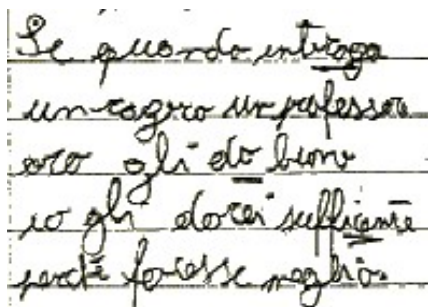 Se quando introga
un ragero un professore
oro gli do bono
io gli dorei sufficante
perché facesse meglio.